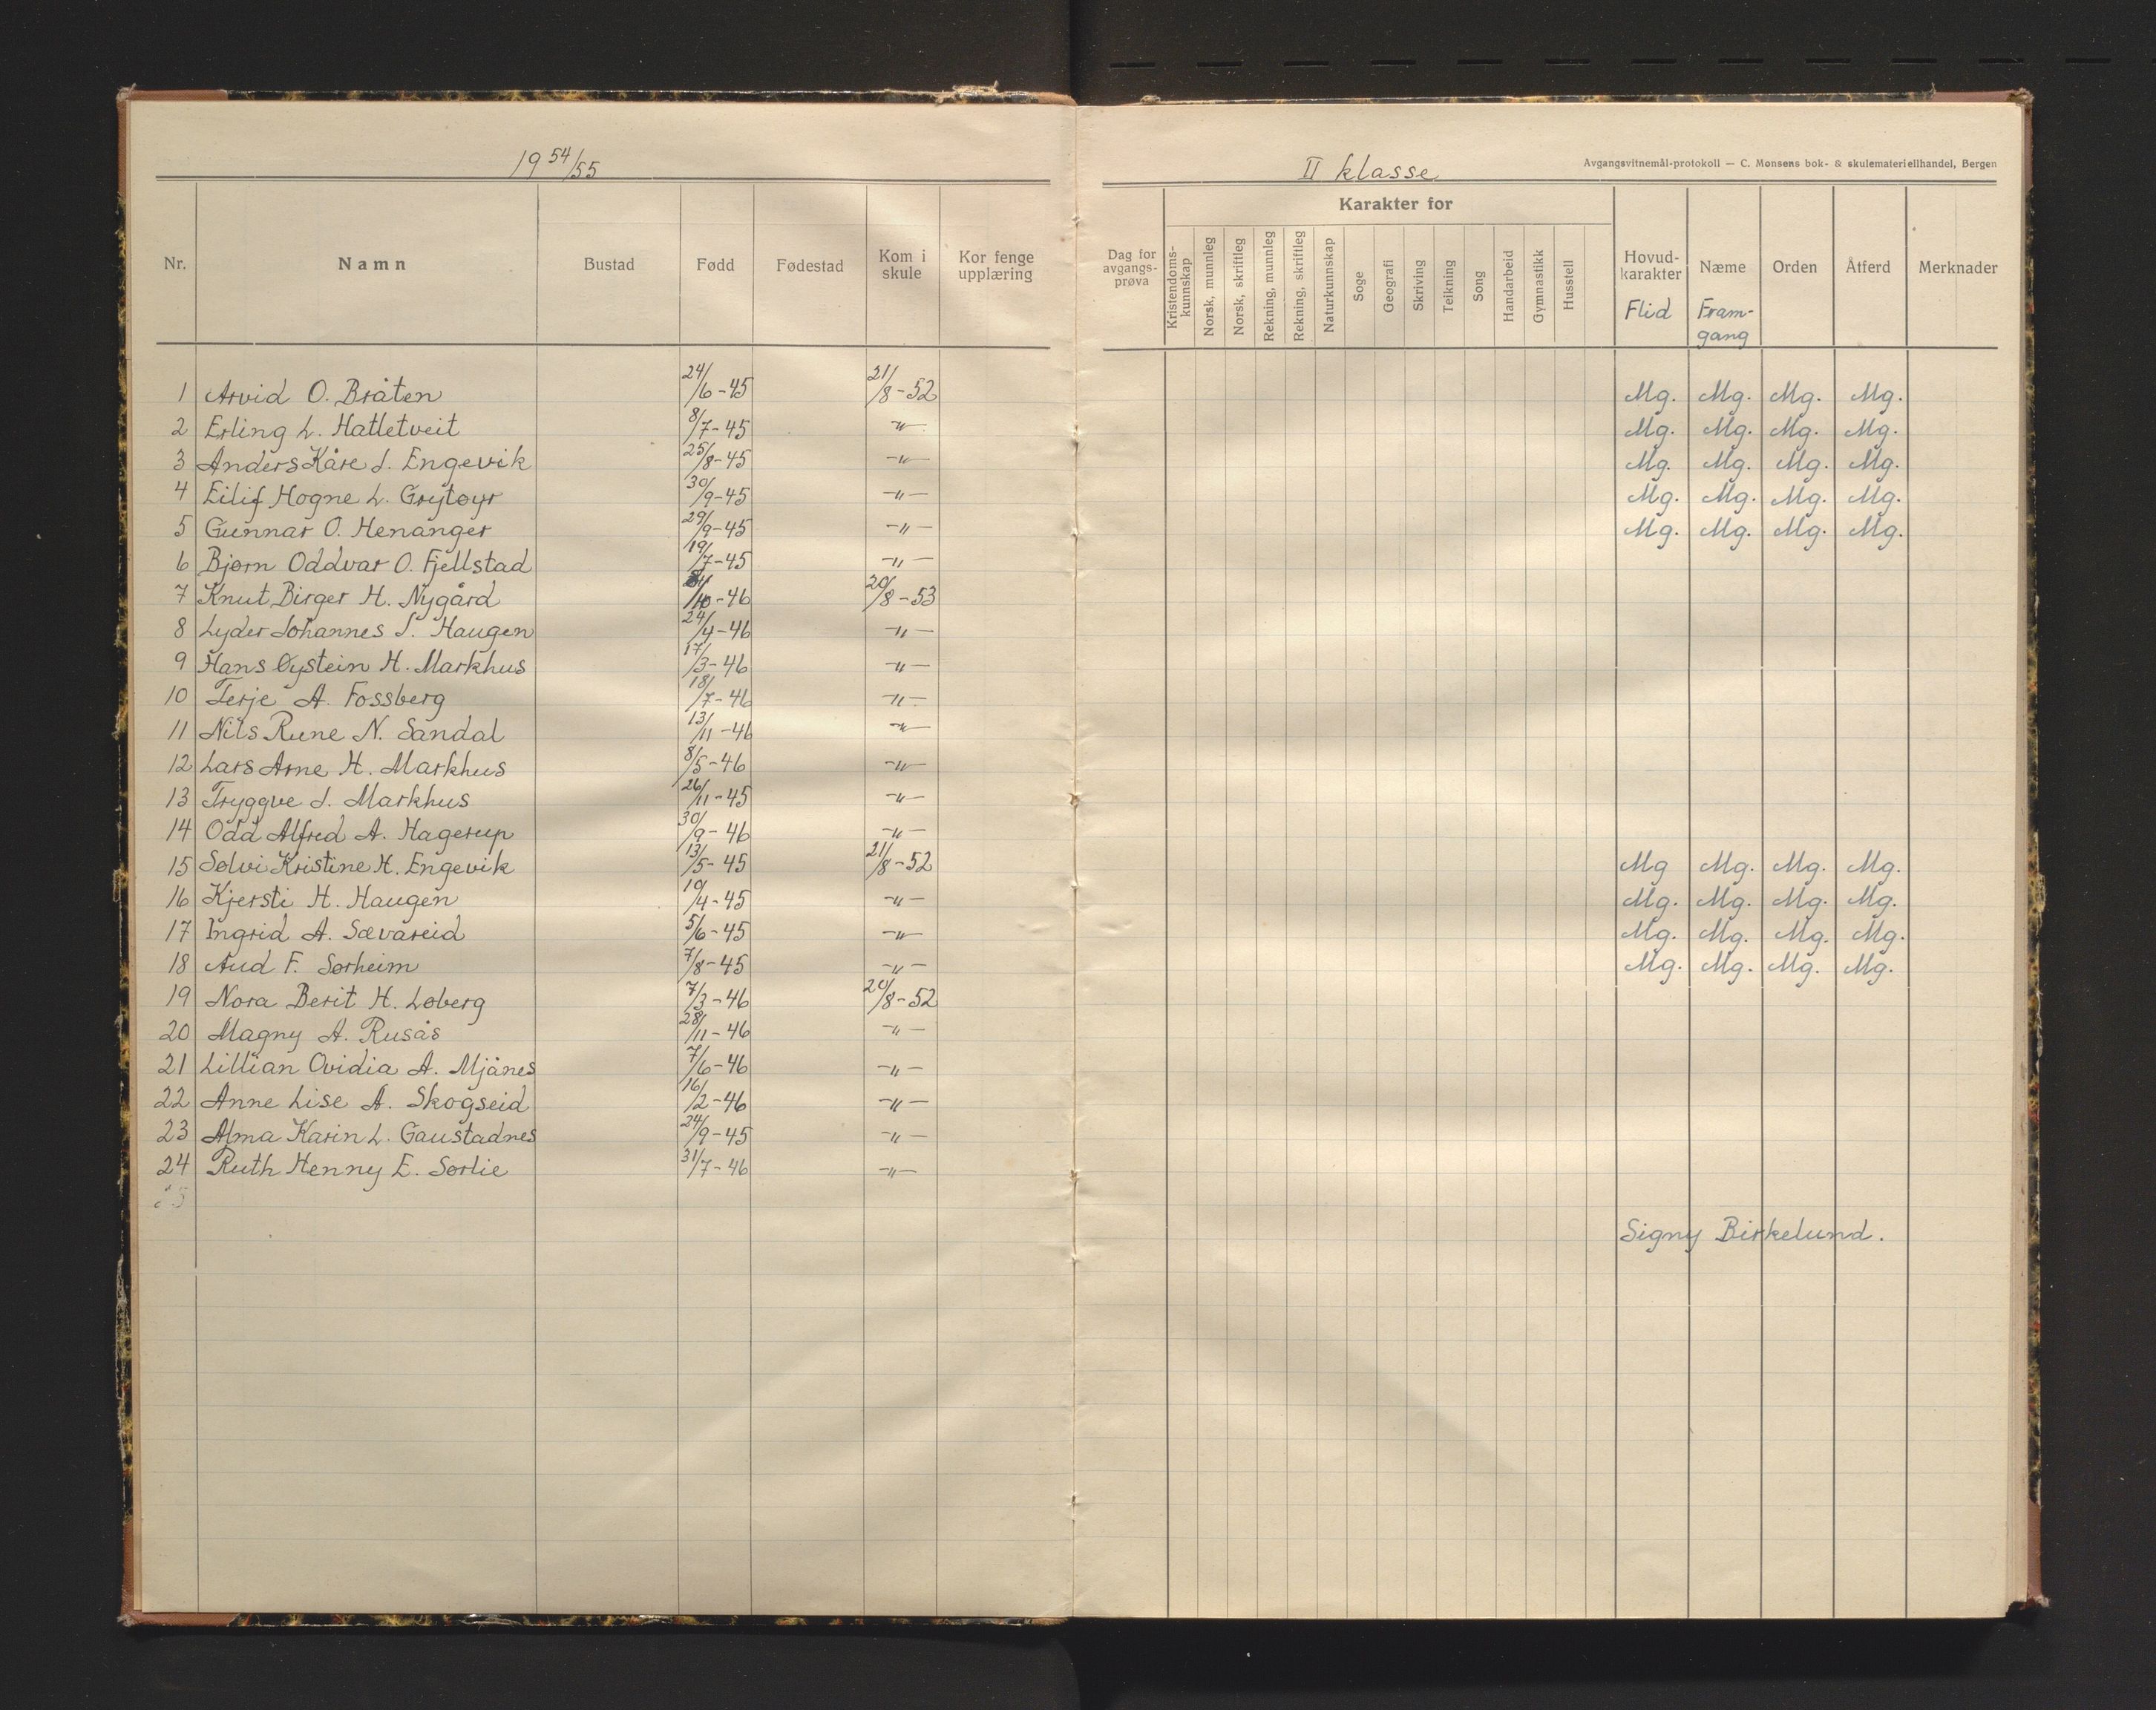 19 54/55
II klasse
Avgangsvitnemål-protokoll — C. Monsens bok- & skulemateriellhandel, Bergen
Nr. Namn Bustad Fødd Fødestad Kom i skule Kor fenge upplæring
Dag for avgangs-prøva
Karakter for
Kristendoms-kunnskap Norsk, munnleg Norsk, skriftleg Rekning, munnleg Rekning, skriftleg Naturkunnskap Soge Geografi Skriving Teikning Song Handarbeid Gymnastikk Husstell
Hovud-karakter Næme Orden Åtferd Merknader
Flid Fram-gang
1 Arvid O. Bråten 24/6-45 21/8-52 Mg. Mg. Mg. Mg.
2 Erling L. Hatletveit 8/7-45 -"- Mg. Mg. Mg. Mg.
3 Anders Kåre J. Engevik 25/8-45 -"- Mg. Mg. Mg. Mg.
4 Eilif Hogne L. Grytøyr 30/9-45 -"- Mg. Mg. Mg. Mg.
5 Gunnar O. Henanger 29/9-45 -"- Mg. Mg. Mg. Mg.
6 Bjørn Oddvar O. Fjellstad 19/7-45 -"-
7 Knut Birger H. Nygård /10-46 20/8-53
8 Lyder Johannes J. Haugen 24/4-46 -"-
9 Hans Øystein H. Markhus 17/3-46 -"-
10 Terje A. Fossberg 18/7-46 -"-
11 Nils Rune N. Sandal 13/11-46 -"-
12 Lars Arne H. Markhus 8/5-46 -"-
13 Tryggve J. Markhus 26/11-45 -"-
14 Odd Alfred A. Hagerup 30/9-46 -"-
15 Sølvi Kristine H. Engevik 13/5-45 21/8-52 Mg Mg. Mg. Mg.
16 Kjersti H. Haugen 10/4-45 -"- Mg. Mg. Mg. Mg.
17 Ingrid A. Sævareid 5/6-45 -"- Mg. Mg. Mg. Mg.
18 Aud F. Sørheim 7/8-45 -"- Mg. Mg. Mg. Mg.
19 Nora Berit H. Løberg 7/3-46 20/8-52
20 Magny A. Rusås 28/11-46 -"-
21 Lillian Ovidia A. Mjånes 7/6-46 -"-
22 Anne Lise A. Skogseid 16/2-46 -"-
23 Alma Karin L. Gaustadnes 24/9-45 -"-
24 Ruth Henny E. Sørlie 31/7-46 -"-
Signy Birkelund.